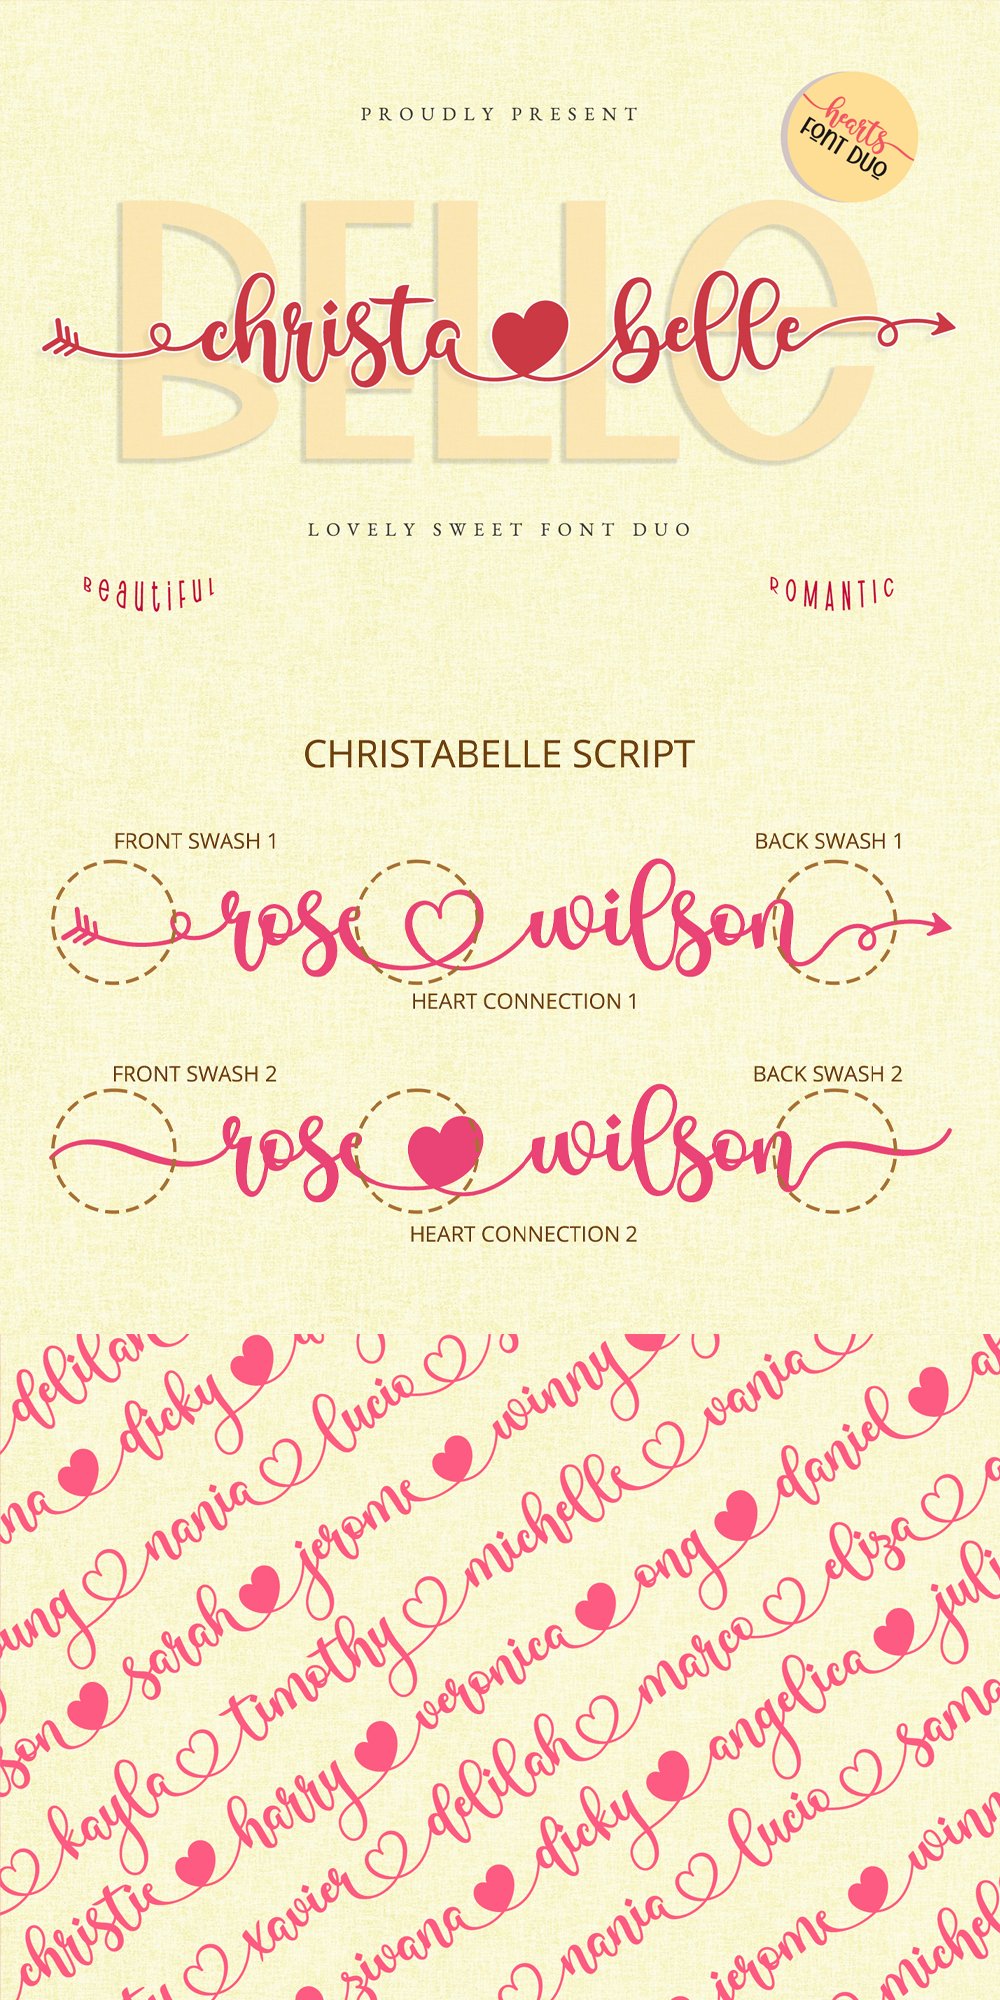 PROUDLY PRESENT
hearts
FONT DUO
BELLE
christa belle
LOVELY SWEET FONT DUO
Beautiful
ROMANTIC
CHRISTABELLE SCRIPT
FRONT SWASH 1
BACK SWASH 1
rose wilson
HEART CONNECTION 1
FRONT SWASH 2
BACK SWASH 2
rose wilson
HEART CONNECTION 2
delilah
dicky
nania lucio
sarah jerome winny
kayla timothy michelle vania
christie harry veronica ong daniel
xavier delilah marco eliza
zivana dicky angelica
nania lucio
jerome